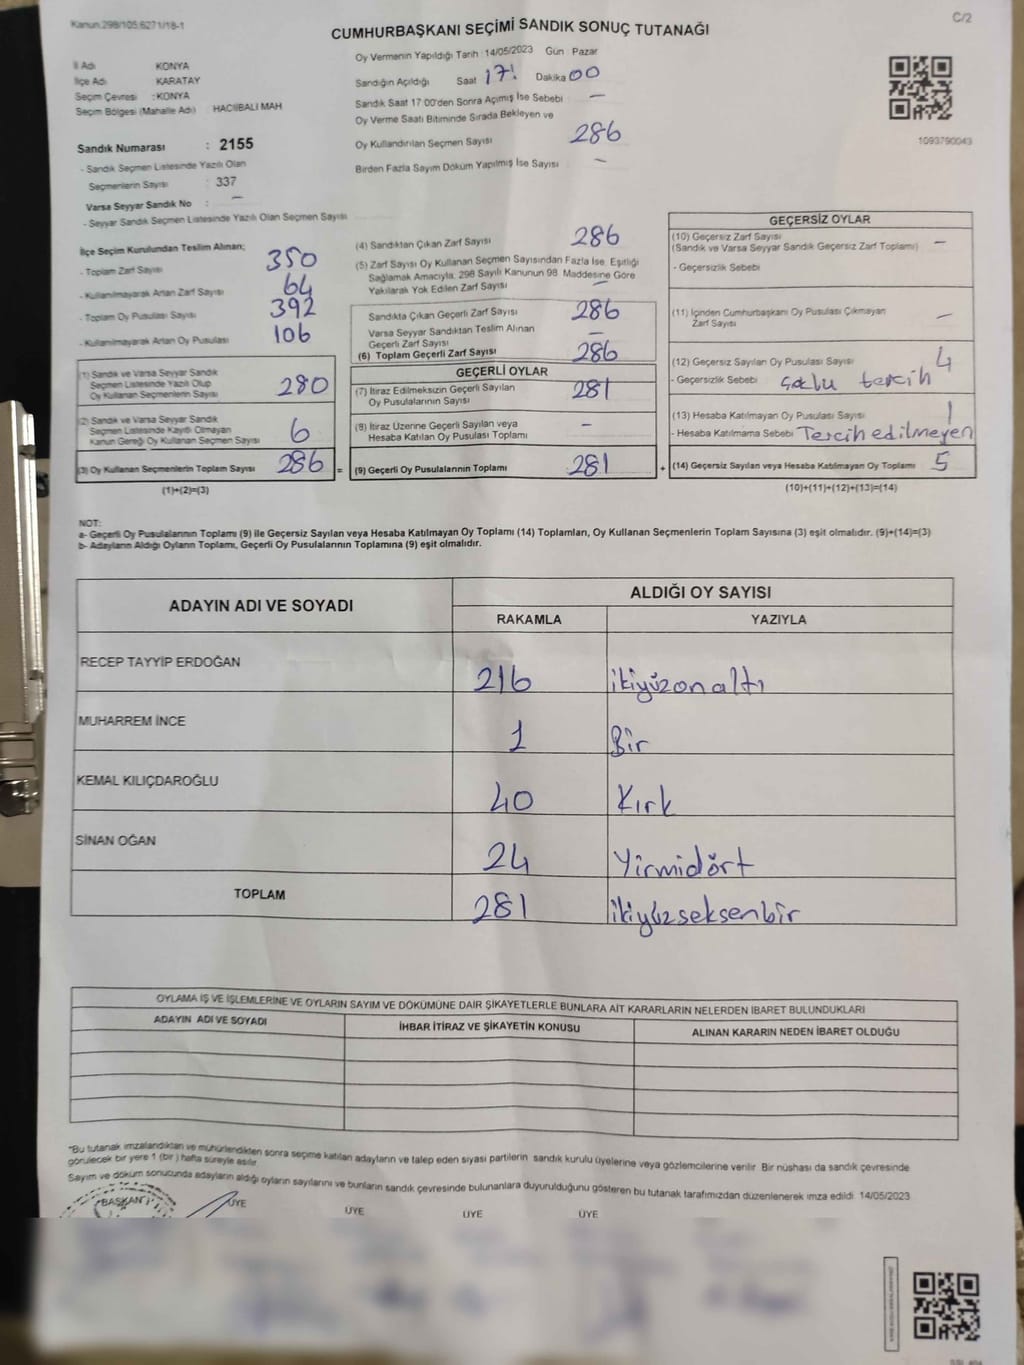 Kanun:298/105,6271/18-1
C/2
CUMHURBAŞKANI SEÇİMİ SANDIK SONUÇ TUTANAĞI
İl Adı KONYA
İlçe Adı KARATAY
Seçim Çevresi : KONYA
Seçim Bölgesi (Mahalle Adı) HACIİBALİ MAH
Sandık Numarası : 2155
- Sandık Seçmen Listesinde Yazılı Olan
Seçmenlerin Sayısı : 337
Varsa Seyyar Sandık No : –
- Seyyar Sandık Seçmen Listesinde Yazılı Olan Seçmen Sayısı
Oy Vermenin Yapıldığı Tarih : 14/05/2023 Gün : Pazar
Sandığın Açıldığı Saat 17: Dakika 00
Sandık Saat 17:00'den Sonra Açımış İse Sebebi –
Oy Verme Saati Bitiminde Sırada Bekleyen ve
Oy Kullandırılan Seçmen Sayısı 286
Birden Fazla Sayım Döküm Yapılmış İse Sayısı –
1093790043
İlçe Seçim Kurulundan Teslim Alınan;
- Toplam Zarf Sayısı 350
- Kullanılmayarak Artan Zarf Sayısı 64
- Toplam Oy Pusulası Sayısı 392
- Kullanılmayarak Artan Oy Pusulası 106
(1) Sandık ve Varsa Seyyar Sandık
Seçmen Listesinde Yazılı Olup
Oy Kullanan Seçmenlerin Sayısı 280
(2) Sandık ve Varsa Seyyar Sandık
Seçmen Listesinde Kayıtlı Olmayan
Kanun Gereği Oy Kullanan Seçmen Sayısı 6
(3) Oy Kullanan Seçmenlerin Toplam Sayısı 286 =
(1)+(2)=(3)
(4) Sandıktan Çıkan Zarf Sayısı 286
(5) Zarf Sayısı Oy Kullanan Seçmen Sayısından Fazla İse, Eşitliği
Sağlamak Amacıyla, 298 Sayılı Kanunun 98. Maddesine Göre
Yakılarak Yok Edilen Zarf Sayısı –
Sandıkta Çıkan Geçerli Zarf Sayısı 286
Varsa Seyyar Sandıktan Teslim Alınan
Geçerli Zarf Sayısı –
(6) Toplam Geçerli Zarf Sayısı 286
GEÇERLİ OYLAR
(7) İtiraz Edilmeksizin Geçerli Sayılan
Oy Pusulalarının Sayısı 281
(8) İtiraz Üzerine Geçerli Sayılan veya
Hesaba Katılan Oy Pusulası Toplamı –
(9) Geçerli Oy Pusulalarının Toplamı 281 +
GEÇERSİZ OYLAR
(10) Geçersiz Zarf Sayısı –
(Sandık ve Varsa Seyyar Sandık Geçersiz Zarf Toplamı)
- Geçersizlik Sebebi
(11) İçinden Cumhurbaşkanı Oy Pusulası Çıkmayan
Zarf Sayısı –
(12) Geçersiz Sayılan Oy Pusulası Sayısı 4
- Geçersizlik Sebebi çoklu tercih
(13) Hesaba Katılmayan Oy Pusulası Sayısı 1
- Hesaba Katılmama Sebebi Tercih edilmeyen
(14) Geçersiz Sayılan veya Hesaba Katılmayan Oy Toplamı 5
(10)+(11)+(12)+(13)=(14)
NOT:
a- Geçerli Oy Pusulalarının Toplamı (9) ile Geçersiz Sayılan veya Hesaba Katılmayan Oy Toplamı (14) Toplamları, Oy Kullanan Seçmenlerin Toplam Sayısına (3) eşit olmalıdır. (9)+(14)=(3)
b- Adayların Aldığı Oyların Toplamı, Geçerli Oy Pusulalarının Toplamına (9) eşit olmalıdır.
ADAYIN ADI VE SOYADI
ALDIĞI OY SAYISI
RAKAMLA YAZIYLA
RECEP TAYYİP ERDOĞAN 216 ikiyüzonaltı
MUHARREM İNCE 1 Bir
KEMAL KILIÇDAROĞLU 40 Kırk
SİNAN OĞAN 24 Yirmidört
TOPLAM 281 ikiyüzseksenbir
OYLAMA İŞ VE İŞLEMLERİNE VE OYLARIN SAYIM VE DÖKÜMÜNE DAİR ŞİKAYETLERLE BUNLARA AİT KARARLARIN NELERDEN İBARET BULUNDUKLARI
ADAYIN ADI VE SOYADI İHBAR İTİRAZ VE ŞİKAYETİN KONUSU ALINAN KARARIN NEDEN İBARET OLDUĞU
*Bu tutanak imzalandıktan ve mühürlendikten sonra seçime katılan adayların ve talep eden siyasi partilerin sandık kurulu üyelerine veya gözlemcilerine verilir. Bir nüshası da sandık çevresinde
görülecek bir yere 1 (bir) hafta süreyle asılır.
Sayım ve döküm sonucunda adayların aldığı oyların sayılarını ve bunların sandık çevresinde bulunanlara duyurulduğunu gösteren bu tutanak tarafımızdan düzenlenerek imza edildi. 14/05/2023
BAŞKAN ÜYE ÜYE ÜYE ÜYE